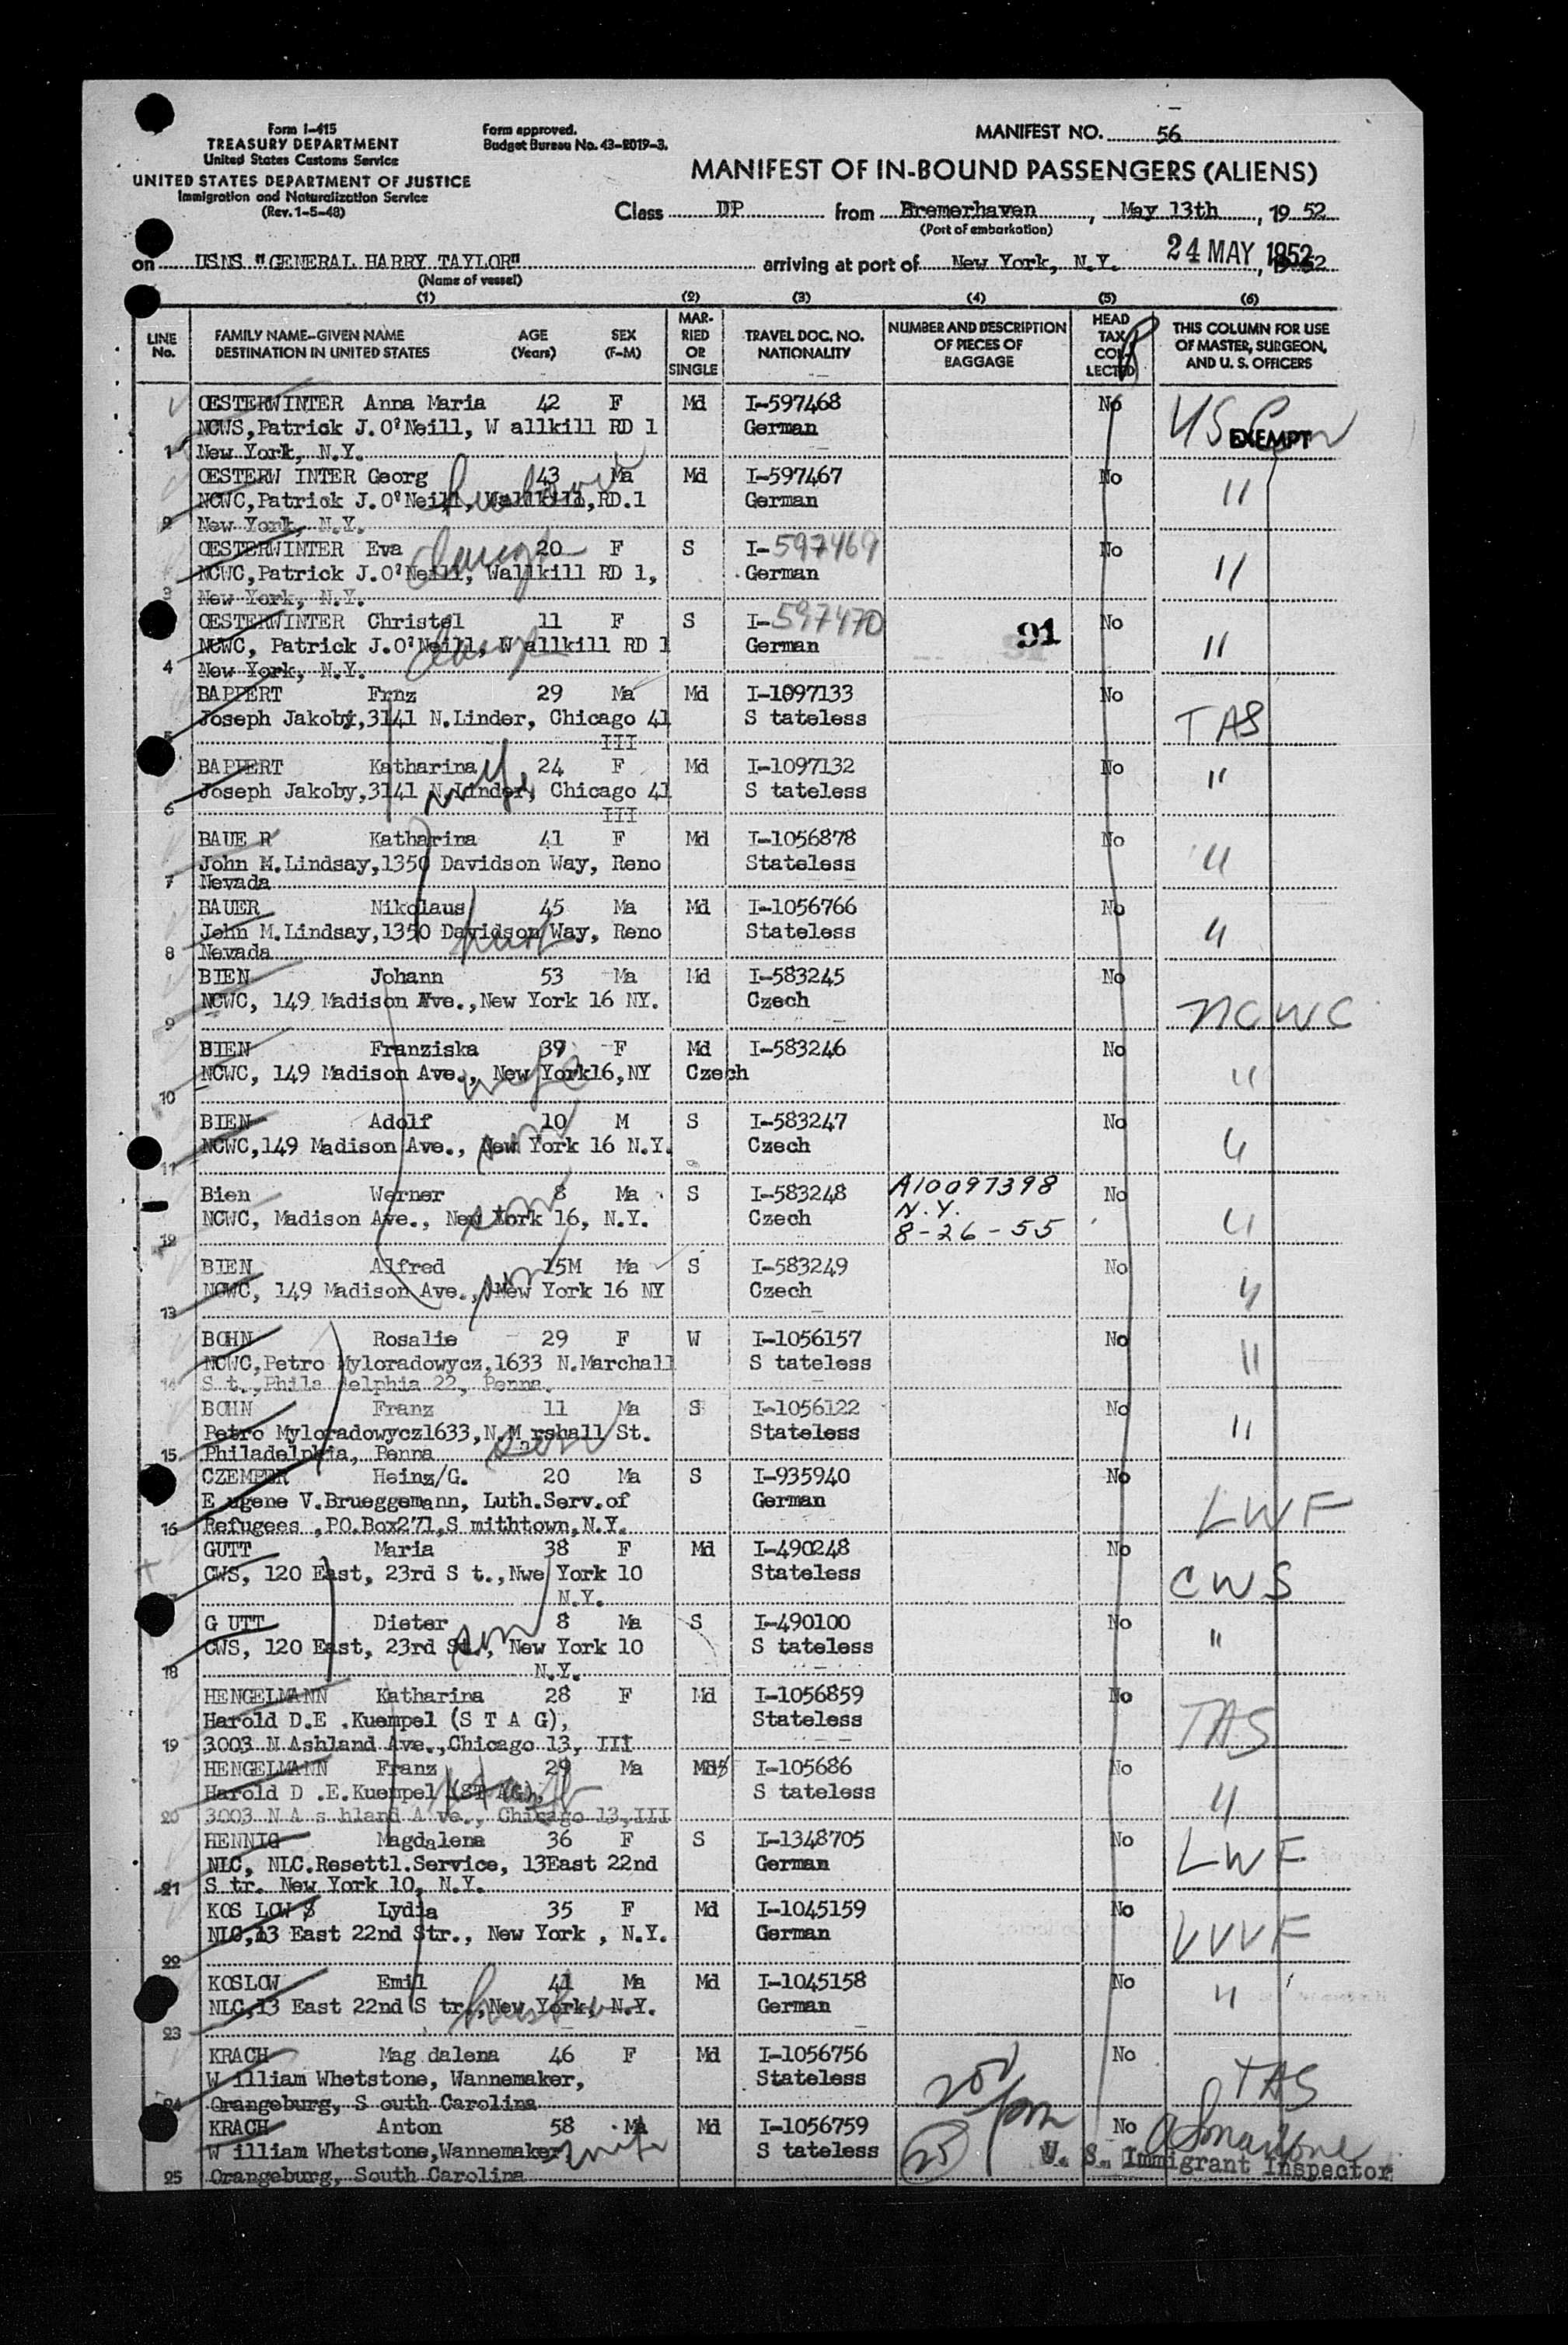 Form I-415
TREASURY DEPARTMENT
United States Customs Service
UNITED STATES DEPARTMENT OF JUSTICE
Immigration and Naturalization Service
(Rev. 1-5-48)
Form approved.
Budget Bureau No. 43-R019-3.
MANIFEST NO. 56
MANIFEST OF IN-BOUND PASSENGERS (ALIENS)
Class DP from Bremerhaven, May 13th, 19 52
(Port of embarkation)
on USNS "GENERAL HARRY TAYLOR" arriving at port of New York, N.Y. 24 MAY 1952
(Name of vessel)
(1) (2) (3) (4) (5) (6)
LINE No. FAMILY NAME-GIVEN NAME DESTINATION IN UNITED STATES AGE (Years) SEX (F-M) MARRIED OR SINGLE TRAVEL DOC. NO. NATIONALITY NUMBER AND DESCRIPTION OF PIECES OF BAGGAGE HEAD TAX COLLECTED THIS COLUMN FOR USE OF MASTER, SURGEON, AND U. S. OFFICERS
OESTERWINTER Anna Maria 42 F Md I-597468 No
NCWS,Patrick J.O'Neill, W allkill RD 1 German EXEMPT
1 New York, N.Y.
OESTERW INTER Georg 43 Ma Md I-597467 No
NCWC,Patrick J.O'Neill, Wallkill,RD.1 German "
2 New York, N.Y. husband
OESTERWINTER Eva 20 F S I-597469 No
NCWC,Patrick J.O'Neill, Wallkill RD 1, German "
3 New York, N.Y.
OESTERWINTER Christel 11 F S I-597470 91 No
NCWC, Patrick J.O'Neill, W allkill RD 1 German "
4 New York, N.Y.
BAPPERT Frnz 29 Ma Md I-1097133 No
Joseph Jakobi,3141 N.Linder, Chicago 41 S tateless TAS
5 III
BAPPERT Katharina 24 F Md I-1097132 No
Joseph Jakoby,3141 N.Linder, Chicago 41 S tateless "
6 III wife
BAUE R Katharina 41 F Md I-1056878 No
John M.Lindsay,1350 Davidson Way, Reno Stateless "
7 Nevada
BAUER Nikolaus 45 Ma Md I-1056766 No
John M.Lindsay,1350 Davidson Way, Reno Stateless "
8 Nevada
BIEN Johann 53 Ma Md I-583245 No
NCWC, 149 Madison Ave.,New York 16 NY. Czech NCWC
9
BIEN Franziska 39 F Md I-583246 No
NCWC, 149 Madison Ave., New York16,NY Czech "
10 wife
BIEN Adolf 10 M S I-583247 No
NCWC,149 Madison Ave., New York 16 N.Y. Czech "
11 son
Bien Werner 8 Ma S I-583248 A10097398 No
NCWC, Madison Ave., New York 16, N.Y. Czech N.Y. "
12 son 8-26-55
BIEN Alfred 15M Ma S I-583249 No
NCWC, 149 Madison Ave., New York 16 NY Czech "
13 son
BOHN Rosalie 29 F W I-1056157 No
NCWC,Petro Myloradowycz,1633 N.Marchall S tateless "
14 S t.,Phila delphia 22, Penna.
BOHN Franz 11 Ma S I-1056122 No
Petro Myloradowycz1633,N.Marshall St. Stateless "
15 Philadelphia, Penna son
CZEMPER Heinz/G. 20 Ma S I-935940 No
E ugene V.Brueggemann, Luth.Serv.of German LWF
16 Refugees ,PO.Box271,S mithtown,N.Y.
GUTT Maria 38 F Md I-490248 No
CWS, 120 East, 23rd S t.,Nwe York 10 Stateless CWS
N.Y.
G UTT Dieter 8 Ma S I-490100 No
CWS, 120 East, 23rd St., New York 10 S tateless "
18 N.Y. son
HENGELMANN Katharina 28 F Md I-1056859 No
Harold D.E .Kuempel (S T A G), Stateless TAS
19 3003 N Ashland Ave.,Chicago 13, III
HENGELMANN Franz 29 Ma Md I-105686 No
Harold D .E.Kuempel (ST AG), S tateless "
20 3003 N A s hland A ve., Chicago 13,III
HENNIG Magdalena 36 F S I-1348705 No
NLC, NLC.Resettl.Service, 13East 22nd German LWF
21 S tr. New York 10, N.Y.
KOS LOW S Lydia 35 F Md I-1045159 No
NLC,13 East 22nd Str., New York , N.Y. German LWF
22
KOSLOW Emil 41 Ma Md I-1045158 No
NLC,13 East 22nd S tr.,New York, N.Y. German "
23 husb
KRACH Mag dalena 46 F Md I-1056756 No
W illiam Whetstone, Wannemaker, Stateless TAS
24 Orangeburg, S outh Carolina
KRACH Anton 58 Ma Md I-1056759 No
W illiam Whetstone,Wannemaker S tateless 25 U. S. Immigrant Inspector
25 Orangeburg, South Carolina